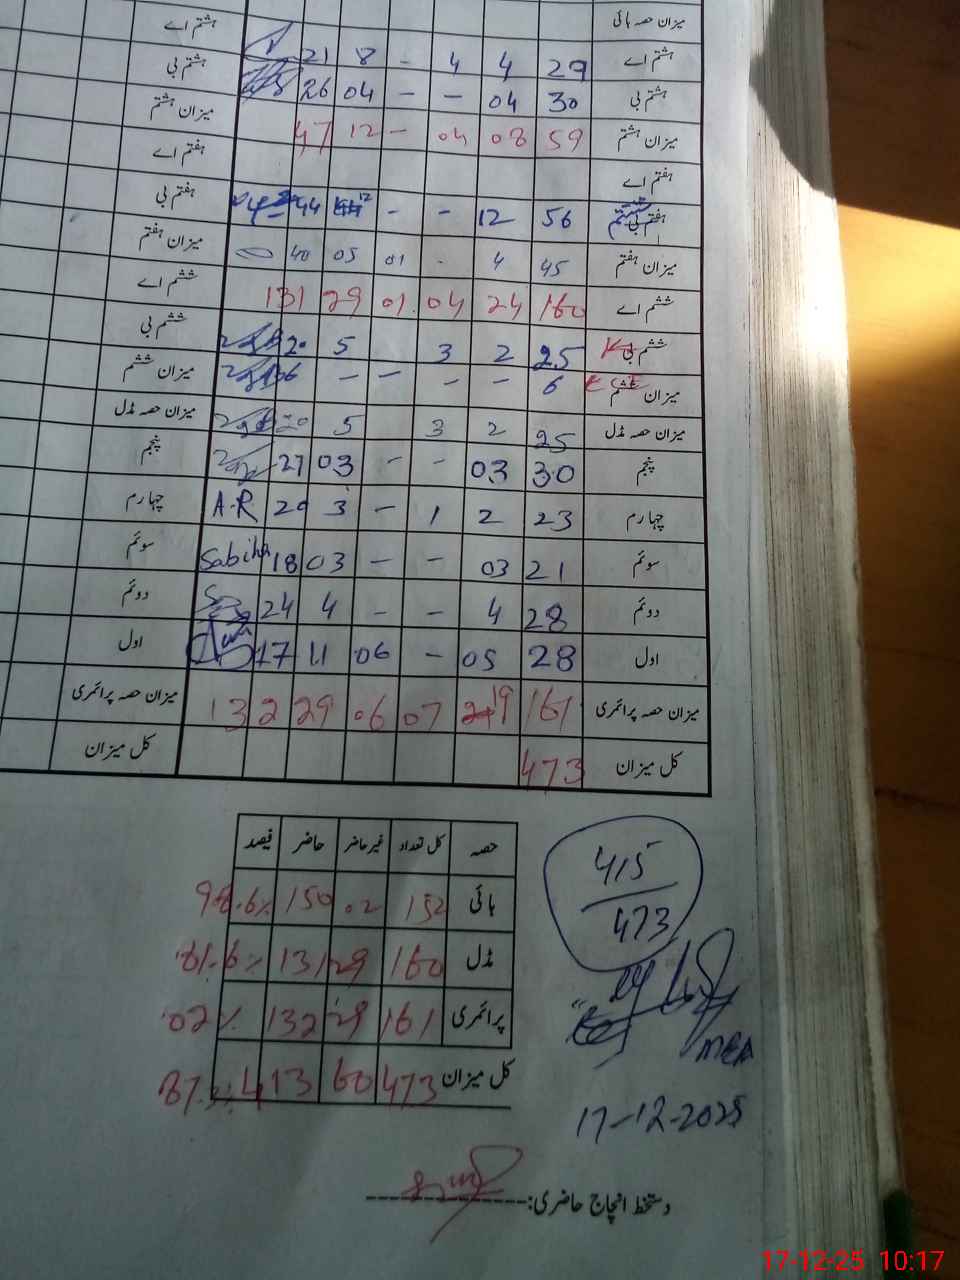 میزان حصہ ہائی
ہشتم اے 29 4 4 - 8 21 ہشتم اے
ہشتم بی 30 04 - - 04 26 ہشتم بی
میزان ہشتم 59 08 04 - 12 47 میزان ہشتم
ہفتم اے ہفتم اے
ہفتم بی 56 12 - - 12 44 ہفتم بی
میزان ہفتم 45 4 - 01 05 40 میزان ہفتم
ششم اے 160 24 04 01 29 131 ششم اے
ششم بی 25 2 3 5 20 ششم بی
میزان ششم 6 - - - - 06 میزان ششم
میزان حصہ مڈل 25 2 3 5 20 میزان حصہ مڈل
پنجم 30 03 - - 03 27 پنجم
چہارم 23 2 1 - 3 20 A.R چہارم
سوئم 21 03 - - 03 18 Sabiha سوئم
دوئم 28 4 - - 4 24 دوئم
اول 28 05 - 06 11 17 اول
میزان حصہ پرائمری 161 19 07 06 29 132 میزان حصہ پرائمری
کل میزان 473 کل میزان
حصہ کل تعداد غیر حاضر حاضر فیصد
ہائی 152 02 150 98.6%
مڈل 160 29 131 81.8%
پرائمری 161 29 132
کل میزان 473 60 413
415
473
MEA
17-12-2025
دستخط انچاج حاضری:
17-12-25 10:17